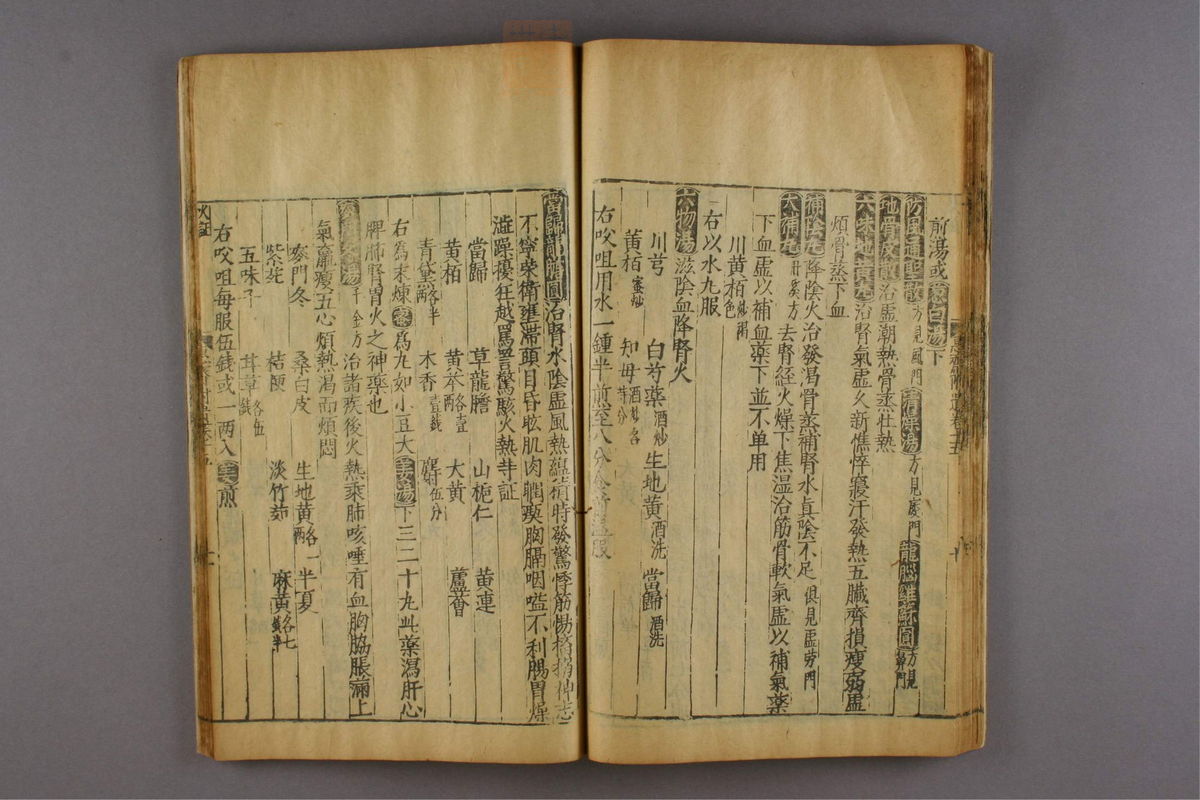 前湯或蔥白湯下
防風通聖散方見風門 清燥湯方見痿門 龍腦雞蘇圓方見鼻門
地骨皮散治虛潮熱骨蒸壯熱
六味地黃丸治腎氣虛久新憔悴寢汗發熱五臟齊損瘦弱虛
煩骨蒸下血
補陰丸降陰火治發渴骨蒸補腎水眞陰不足俱見虛勞門
大補丸丹溪方去腎經火燥下焦濕治筋骨軟氣虛以補氣藥
下血虛以補血藥下並不单用
川黃栢炒褐色
右以水丸服
六物湯滋陰血降腎火
川芎 白芍藥酒炒 生地黃酒洗 當歸酒洗
黃栢蜜炒 知母酒炒各等分
右㕮咀用水一鍾半煎至八分食前服
當歸龍膽圓治腎水陰虛風熱蘊積時發驚悸筋惕搐搦神志
不寧榮衛壅滯頭目昏眩肌肉瞤瘈胸膈咽嗌不利腸胃燥
澁躁擾狂越罵詈驚駭火熱等証
當歸 草龍膽 山梔仁 黃連
黃栢 黃芩各壹兩 大黃 蘆薈
青黛各半兩 木香壹錢 麝伍分
右為末煉蜜爲丸如小豆大姜湯下三二十丸此藥瀉肝心
脾肺腎胃火之神藥也
麥門冬湯千金方治諸疾後火熱乘肺咳唾有血胸脇脹滿上
氣羸瘦五心煩熱渴而煩悶
麥門冬 桑白皮 生地黃各一兩 半夏
紫菀 桔梗 淡竹茹 麻黃各七錢半
五味子 甘草各伍錢
右㕮咀每服伍錢或一两入姜煎
火証